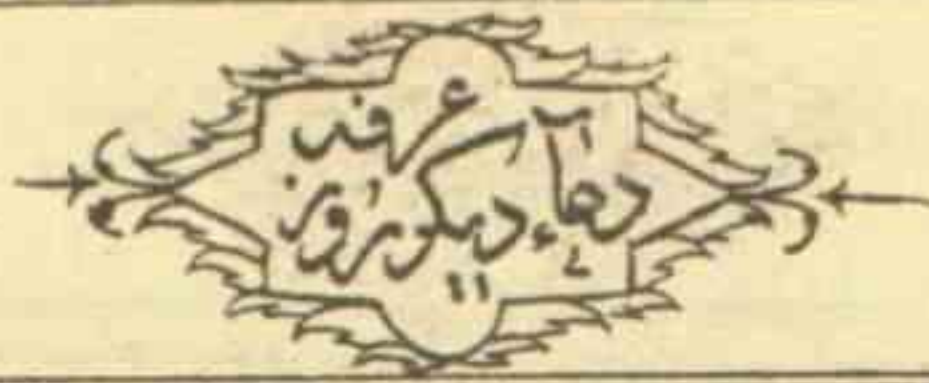 دعآءِ دیگر روز عرفه